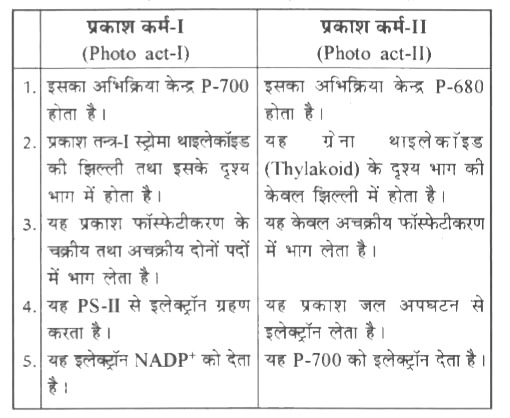 प्रकाश कर्म-I
(Photo act-I)
प्रकाश कर्म-II
(Photo act-II)
1. इसका अभिक्रिया केन्द्र P-700
होता है।
इसका अभिक्रिया केन्द्र P-680
होता है।
2. प्रकाश तन्त्र-I स्ट्रोमा थाइलेकॉइड
की झिल्ली तथा इसके दृश्य
भाग में होता है।
यह ग्रेना थाइलेकॉइड
(Thylakoid) के दृश्य भाग की
केवल झिल्ली में होता है।
3. यह प्रकाश फॉस्फेटीकरण के
चक्रीय तथा अचक्रीय दोनों पदों
में भाग लेता है।
यह केवल अचक्रीय फॉस्फेटीकरण
में भाग लेता है।
4. यह PS-II से इलेक्ट्रॉन ग्रहण
करता है।
यह प्रकाश जल अपघटन से
इलेक्ट्रॉन लेता है।
5. यह इलेक्ट्रॉन NADP⁺ को देता
है।
यह P-700 को इलेक्ट्रॉन देता है।